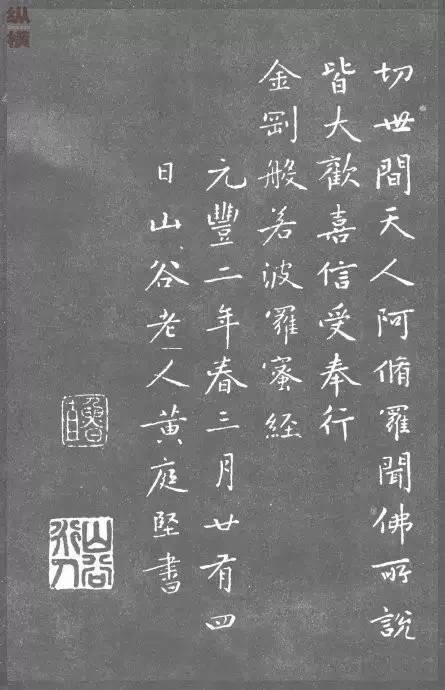 切世間天人阿脩羅聞佛所說
皆大歡喜信受奉行
金剛般若波羅蜜經
元豐二年春三月廿有四
日山谷老人黃庭堅書
纵横